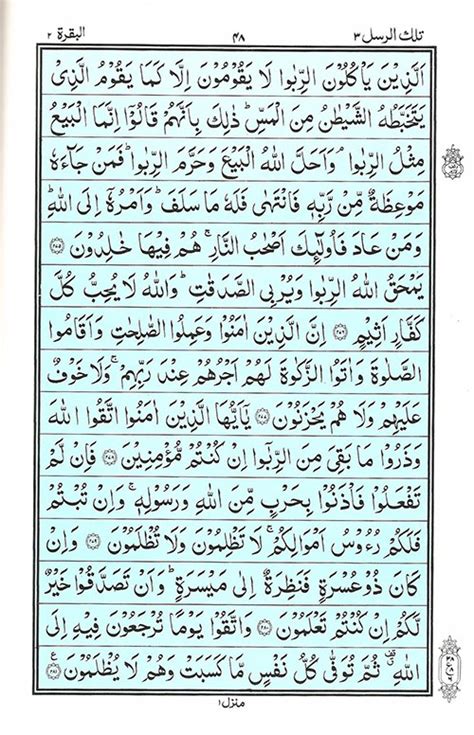 تلك الرسل ٣ ٤٨ البقرة ٢
اَلَّذِيْنَ يَاْكُلُوْنَ الرِّبٰوا لَا يَقُوْمُوْنَ اِلَّا كَمَا يَقُوْمُ الَّذِيْ
يَتَخَبَّطُهُ الشَّيْطٰنُ مِنَ الْمَسِّ ؕ ذٰلِكَ بِاَنَّهُمْ قَالُوْۤا اِنَّمَا الْبَيْعُ
مِثْلُ الرِّبٰوا ۘ وَاَحَلَّ اللّٰهُ الْبَيْعَ وَحَرَّمَ الرِّبٰوا ؕ فَمَنْ جَآءَهٗ
مَوْعِظَةٌ مِّنْ رَّبِّهٖ فَانْتَهٰى فَلَهٗ مَا سَلَفَ ؕ وَاَمْرُهٗۤ اِلَى اللّٰهِ ؕ
وَمَنْ عَادَ فَاُولٰٓئِكَ اَصْحٰبُ النَّارِ ۚ هُمْ فِيْهَا خٰلِدُوْنَ ﴿٢٧٥﴾
يَمْحَقُ اللّٰهُ الرِّبٰوا وَيُرْبِى الصَّدَقٰتِ ؕ وَاللّٰهُ لَا يُحِبُّ كُلَّ
كَفَّارٍ اَثِيْمٍ ﴿٢٧٦﴾ اِنَّ الَّذِيْنَ اٰمَنُوْا وَعَمِلُوا الصّٰلِحٰتِ وَاَقَامُوا
الصَّلٰوةَ وَاٰتَوُا الزَّكٰوةَ لَهُمْ اَجْرُهُمْ عِنْدَ رَبِّهِمْ ۚ وَلَا خَوْفٌ
عَلَيْهِمْ وَلَا هُمْ يَحْزَنُوْنَ ﴿٢٧٧﴾ يٰۤاَيُّهَا الَّذِيْنَ اٰمَنُوا اتَّقُوا اللّٰهَ
وَذَرُوْا مَا بَقِيَ مِنَ الرِّبٰۤوا اِنْ كُنْتُمْ مُّؤْمِنِيْنَ ﴿٢٧٨﴾ فَاِنْ لَّمْ
تَفْعَلُوْا فَاْذَنُوْا بِحَرْبٍ مِّنَ اللّٰهِ وَرَسُوْلِهٖ ۚ وَاِنْ تُبْتُمْ
فَلَكُمْ رُءُوْسُ اَمْوَالِكُمْ ۚ لَا تَظْلِمُوْنَ وَلَا تُظْلَمُوْنَ ﴿٢٧٩﴾ وَاِنْ
كَانَ ذُوْ عُسْرَةٍ فَنَظِرَةٌ اِلٰى مَيْسَرَةٍ ؕ وَاَنْ تَصَدَّقُوْا خَيْرٌ
لَّكُمْ اِنْ كُنْتُمْ تَعْلَمُوْنَ ﴿٢٨٠﴾ وَاتَّقُوْا يَوْمًا تُرْجَعُوْنَ فِيْهِ اِلَى
اللّٰهِ ۗ ثُمَّ تُوَفّٰى كُلُّ نَفْسٍ مَّا كَسَبَتْ وَهُمْ لَا يُظْلَمُوْنَ ﴿٢٨١﴾
منزل ١